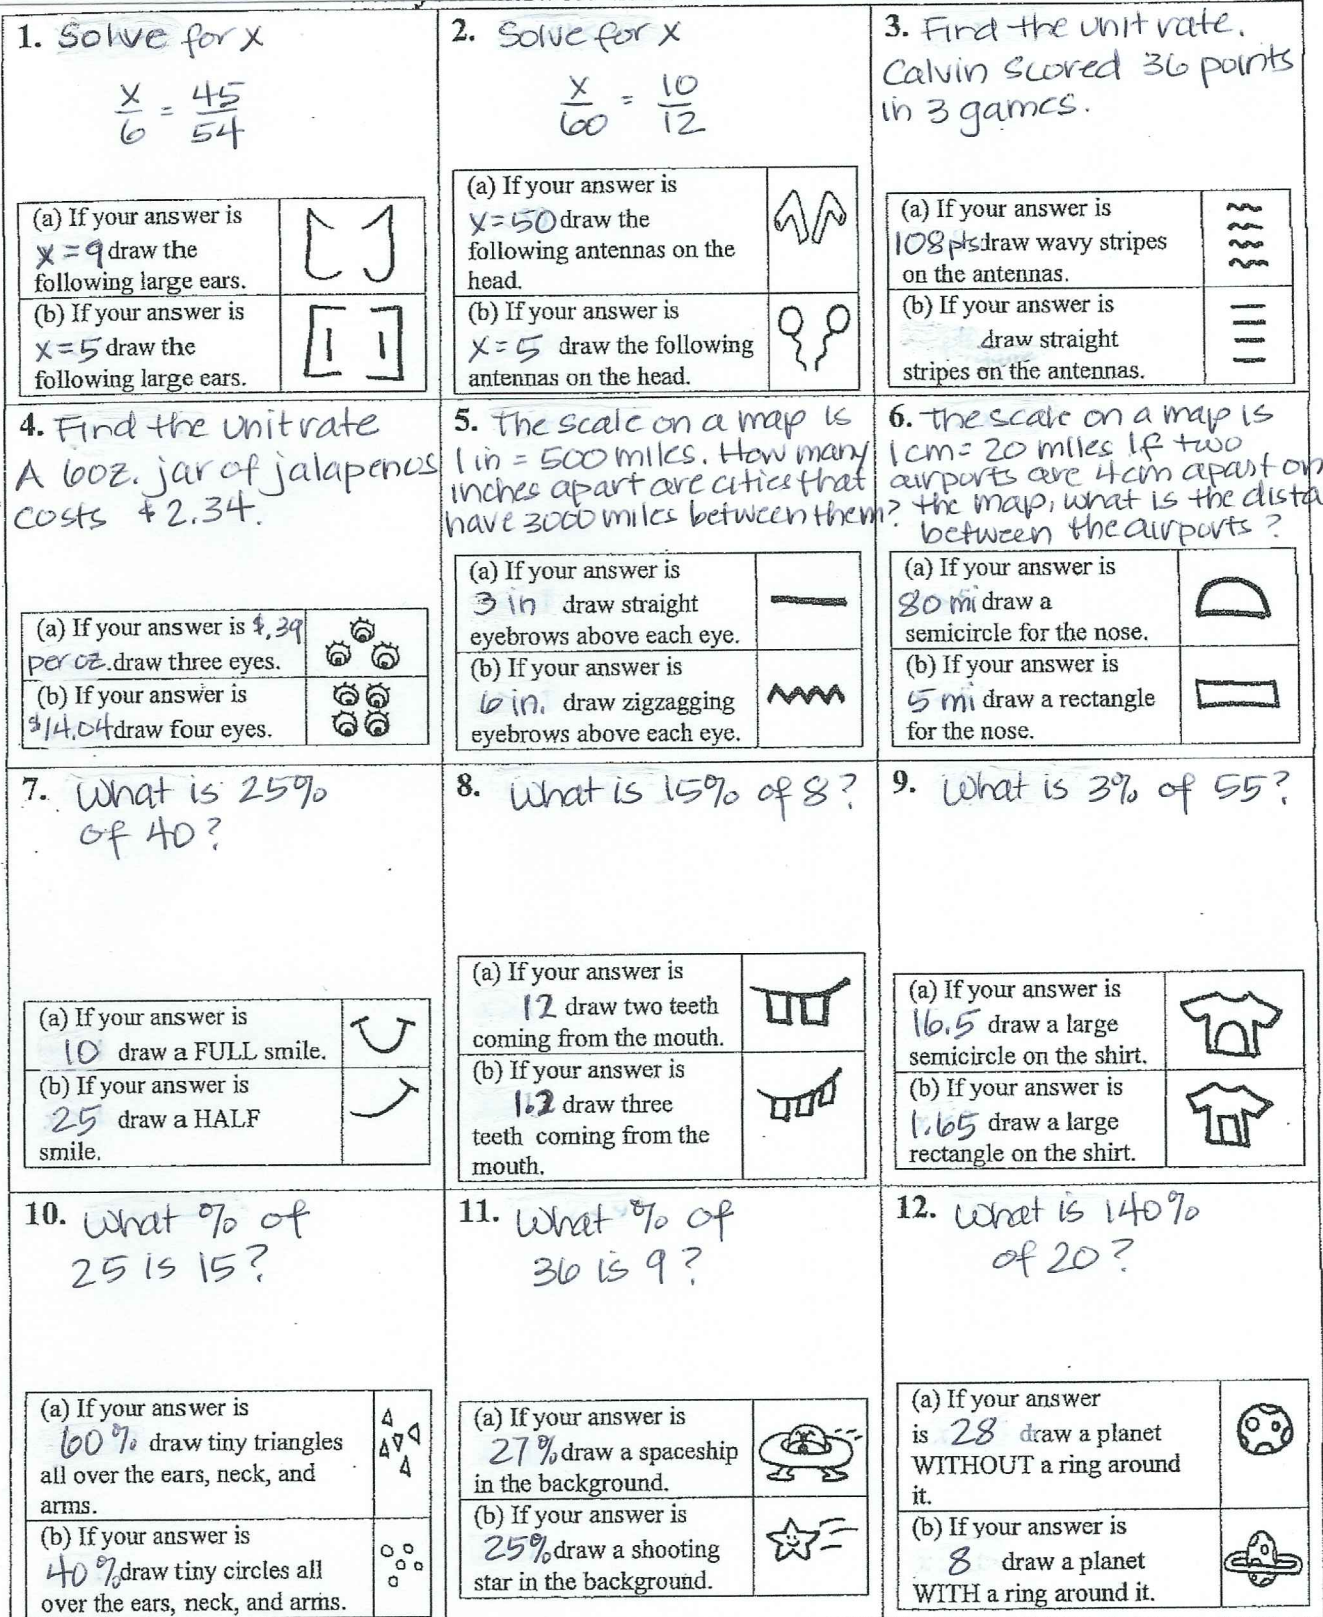 1. Solve for x
x/6 = 45/54
(a) If your answer is
x = 9 draw the
following large ears.
(b) If your answer is
x = 5 draw the
following large ears.
2. Solve for x
x/60 = 10/12
(a) If your answer is
x = 50 draw the
following antennas on the
head.
(b) If your answer is
x = 5 draw the following
antennas on the head.
3. Find the unit rate.
Calvin scored 36 points
in 3 games.
(a) If your answer is
108 pts draw wavy stripes
on the antennas.
(b) If your answer is
draw straight
stripes on the antennas.
4. Find the unit rate
A 6oz. jar of jalapenos
costs $2.34.
(a) If your answer is $.39
per oz. draw three eyes.
(b) If your answer is
$14.04 draw four eyes.
5. The scale on a map is
1 in = 500 miles. How many
inches apart are cities that
have 3000 miles between them?
(a) If your answer is
3 in draw straight
eyebrows above each eye.
(b) If your answer is
6 in. draw zigzagging
eyebrows above each eye.
6. The scale on a map is
1 cm = 20 miles If two
airports are 4cm apart on
the map, what is the dista
between the airports?
(a) If your answer is
80 mi draw a
semicircle for the nose.
(b) If your answer is
5 mi draw a rectangle
for the nose.
7. What is 25%
of 40?
(a) If your answer is
10 draw a FULL smile.
(b) If your answer is
25 draw a HALF
smile.
8. What is 15% of 8?
(a) If your answer is
12 draw two teeth
coming from the mouth.
(b) If your answer is
1.2 draw three
teeth coming from the
mouth.
9. What is 3% of 55?
(a) If your answer is
16.5 draw a large
semicircle on the shirt.
(b) If your answer is
1.65 draw a large
rectangle on the shirt.
10. What % of
25 is 15?
(a) If your answer is
60% draw tiny triangles
all over the ears, neck, and
arms.
(b) If your answer is
40% draw tiny circles all
over the ears, neck, and arms.
11. What % of
36 is 9?
(a) If your answer is
27% draw a spaceship
in the background.
(b) If your answer is
25% draw a shooting
star in the background.
12. What is 140%
of 20?
(a) If your answer
is 28 draw a planet
WITHOUT a ring around
it.
(b) If your answer is
8 draw a planet
WITH a ring around it.